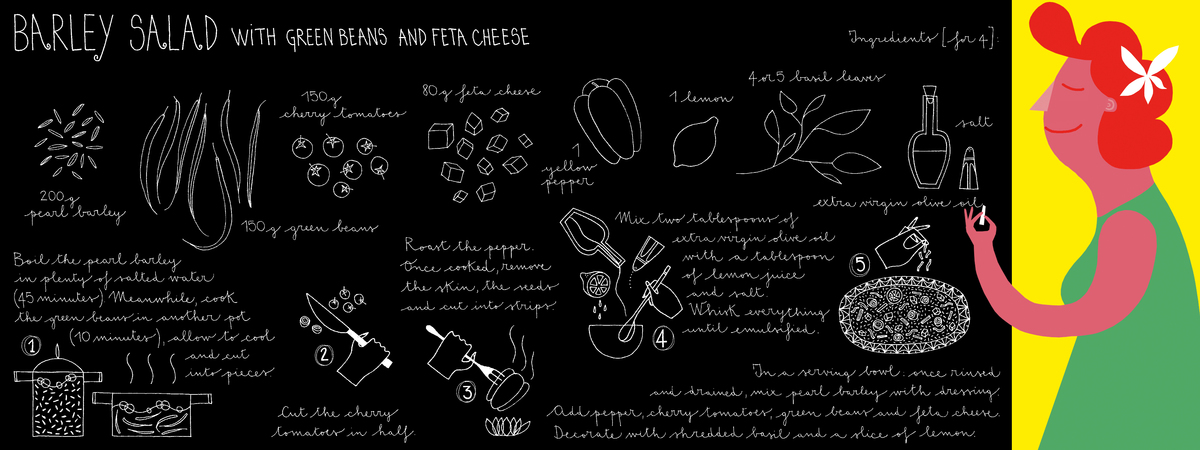 BARLEY SALAD WITH GREEN BEANS AND FETA CHEESE
Ingredients [for 4]:
200g
pearl barley
150g green beans
150g
cherry tomatoes
80g feta cheese
1
yellow
pepper
1 lemon
4 or 5 basil leaves
extra virgin olive oil
salt
Boil the pearl barley
in plenty of salted water
(45 minutes). Meanwhile, cook
the green beans in another pot
(10 minutes), allow to cool
and cut
into pieces
1
2
Cut the cherry
tomatoes in half.
Roast the pepper.
Once cooked, remove
the skin, the seeds
and cut into strips.
3
Mix two tablespoons of
extra virgin olive oil
with a tablespoon
of lemon juice
and salt.
Whisk everything
until emulsified.
4
5
In a serving bowl: once rinsed
and drained, mix pearl barley with dressing.
Add pepper, cherry tomatoes, green beans and feta cheese.
Decorate with shredded basil and a slice of lemon.